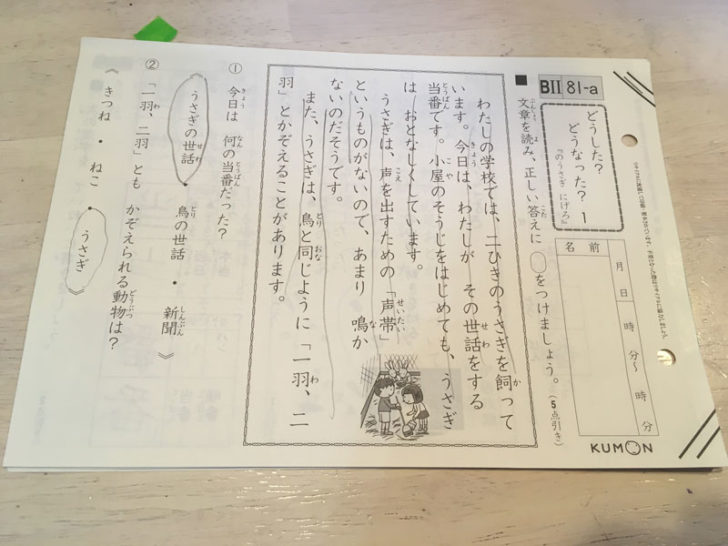 BII 81-a
どうした?
どうなった? 1
『のうさぎ にげろ』
名前
月 日 時 分〜 時 分
KUMON
■ 文章を読み、正しい答えに ○をつけましょう。(5点引き)
わたしの学校では、二ひきのうさぎを飼って
います。今日は、わたしが その世話をする
当番です。小屋のそうじをはじめても、うさぎ
は おとなしくしています。
うさぎは、声を出すための「声帯」
というものがないので、あまり 鳴か
ないのだそうです。
また、うさぎは、鳥と同じように「一羽、二
羽」とかぞえることがあります。
① 今日は 何の当番だった?
うさぎの世話 • 鳥の世話 • 新聞 》
② 「一羽、二羽」とも かぞえられる動物は?
《 きつね • ねこ • うさぎ 》